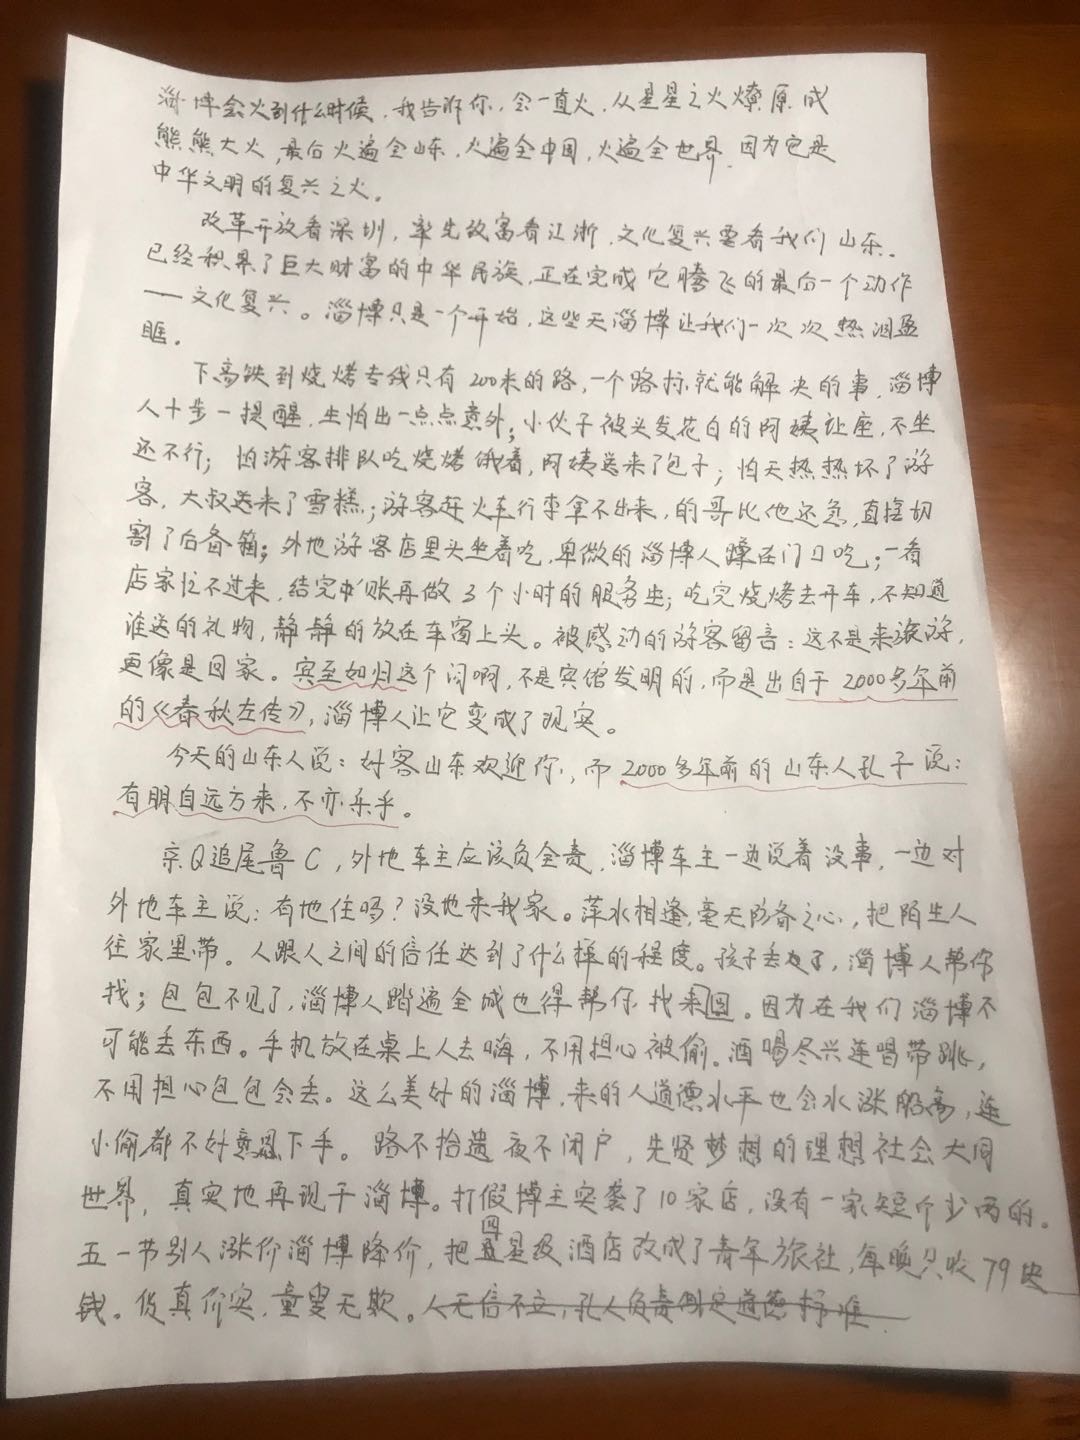 淄博会火到什么时候，我告诉你，会一直火，从星星之火燎原成
熊熊大火，最后火遍全山东，火遍全中国，火遍全世界，因为它是
中华文明的复兴之火。
改革开放看深圳，率先致富看江浙，文化复兴要看我们山东。
已经积累了巨大财富的中华民族，正在完成它腾飞的最后一个动作
——文化复兴。淄博只是一个开始，这些天淄博让我们一次次热泪盈
眶。
下高铁到烧烤专线只有200米的路，一个路标就能解决的事，淄博
人十步一提醒，生怕出一点点意外；小伙子被头发花白的阿姨让座，不坐
还不行；怕游客排队吃烧烤饿着，阿姨送来了包子；怕天热热坏了游
客，大叔送来了雪糕；游客赶火车行李拿不出来，的哥比他还急，直接切
割了后备箱；外地游客店里头坐着吃，卑微的淄博人蹲在门口吃；一看
店家忙不过来，结完账再做3个小时的服务生；吃完烧烤去开车，不知道
谁送的礼物，静静的放在车窗上头。被感动的游客留言：这不是来旅游，
更像是回家。宾至如归这个词啊，不是宾馆发明的，而是出自于2000多年前
的《春秋左传》，淄博人让它变成了现实。
今天的山东人说：好客山东欢迎你，而2000多年前的山东人孔子说：
有朋自远方来，不亦乐乎。
京Q追尾鲁C，外地车主应该负全责，淄博车主一边说着没事，一边对
外地车主说：有地住吗？没地来我家。萍水相逢，毫无防备之心，把陌生人
往家里带。人跟人之间的信任达到了什么样的程度。孩子丢了，淄博人帮你
找；包包不见了，淄博人踏遍全城也得帮你找来回。因为在我们淄博不
可能丢东西。手机放在桌上人去嗨，不用担心被偷。酒喝尽兴连唱带跳，
不用担心包包会丢。这么美好的淄博，来的人道德水平也会水涨船高，连
小偷都不好意思下手。路不拾遗夜不闭户，先贤梦想的理想社会大同
世界，真实地再现于淄博。打假博主突袭了10家店，没有一家短斤少两的。
五一节别人涨价淄博降价，把四星级酒店改成了青年旅社，每晚只收79块
钱。货真价实，童叟无欺。人无信不立，孔人负责制定道德标准